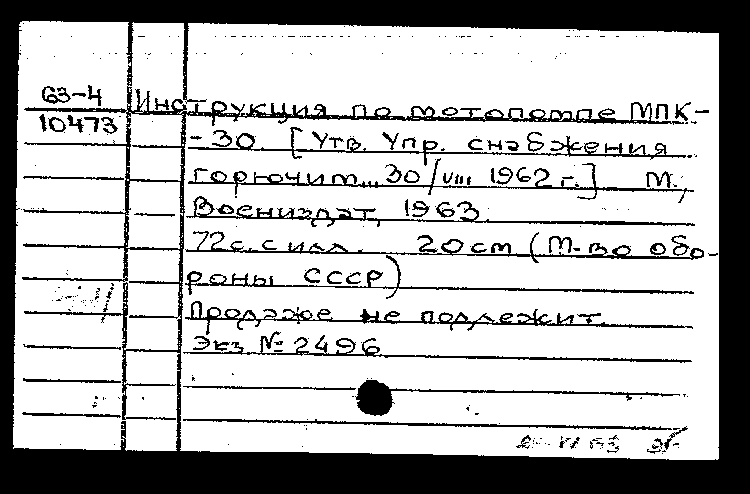 63-4
10473
Инструкция по мотопомпе МПК-
-30. [Утв. Упр. снабжения
горючим... 30/VIII 1962 г.] М.,
Воениздат, 1963.
72 с. с илл. 20 см (М-во обо-
роны СССР)
Продаже не подлежит.
Экз. № 2496